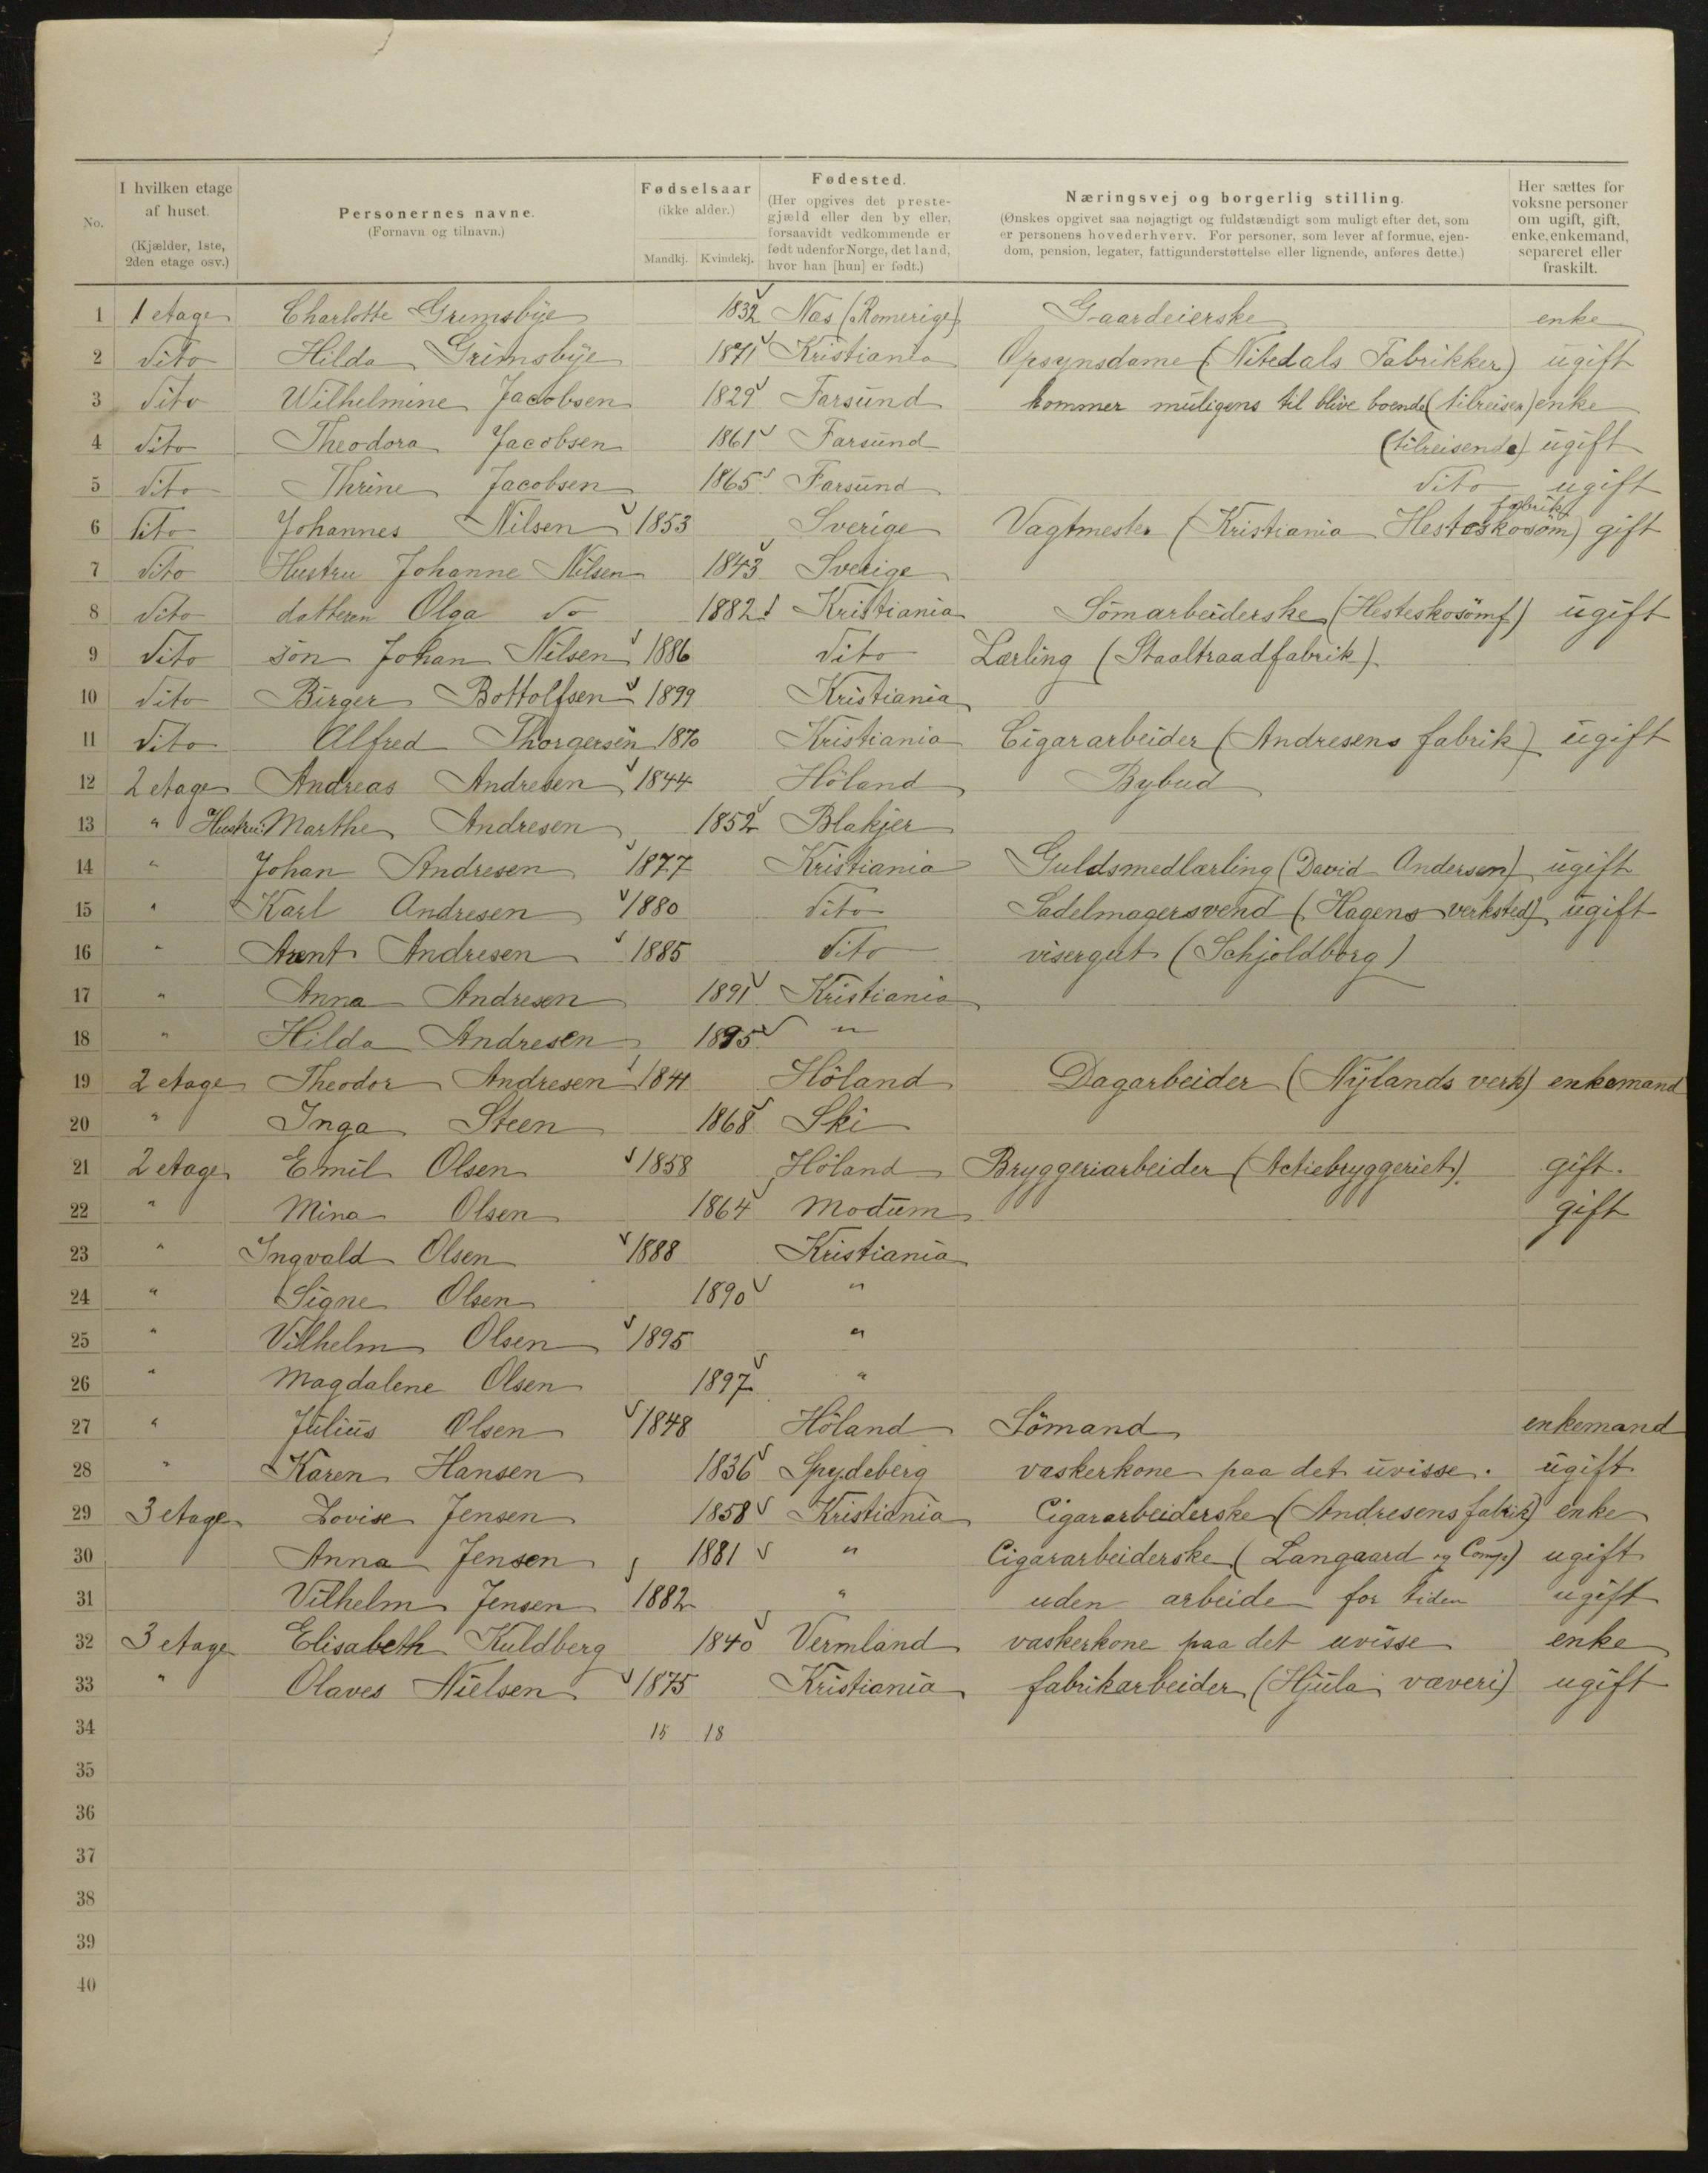 No. | I hvilken etage af huset. (Kjælder, 1ste, 2den etage osv.) | Personernes navne. (Fornavn og tilnavn.) | Fødselsaar (ikke alder.) Mandkj. Kvindekj. | Fødested. (Her opgives det prestegjæld eller den by eller, forsaavidt vedkommende er født udenfor Norge, det land, hvor han [hun] er født.) | Næringsvej og borgerlig stilling. (Ønskes opgivet saa nøjagtigt og fuldstændigt som muligt efter det, som er personens hovederhverv. For personer, som lever af formue, ejendom, pension, legater, fattigunderstøttelse eller lignende, anføres dette.) | Her sættes for voksne personer om ugift, gift, enke, enkemand, separeret eller fraskilt.
1 1 etage Charlotte Grimsbye 1832 Næs (Romerige) Gaardeierske enke
2 dito Hilda Grimsbye 1871 Kristiania Opsynsdame (Nitedals Fabrikker) ugift
3 dito Wilhelmine Jacobsen 1829 Farsund kommer muligens til blive boende (tilreisen) enke
4 dito Theodora Jacobsen 1861 Farsund (tilreisende) ugift
5 dito Thrine Jacobsen 1865 Farsund dito ugift
6 dito Johannes Nilsen 1853 Sverige Vagtmester (Kristiania Hesteskosöm fabrik) gift
7 dito Hustru Johanne Nilsen 1843 Sverige
8 dito datteren Olga do 1882 Kristiania Sömarbeiderske (Hesteskosömf) ugift
9 dito sön Johan Nilsen 1886 dito Lærling (Staaltraadfabrik)
10 dito Birger Bottolfsen 1899 Kristiania
11 dito Alfred Thorgersen 1870 Kristiania Cigararbeider (Andresens fabrik) ugift
12 2 etage Andreas Andresen 1844 Höland Bybud
13 " Hustru: Marthe Andresen 1852 Blakjer
14 " Johan Andresen 1877 Kristiania Guldsmedlærling (David Andersen) ugift
15 " Karl Andresen 1880 dito Sadelmagersvend (Hagens verksted) ugift
16 " Arent Andresen 1885 dito visergut (Schjoldborg)
17 " Anna Andresen 1891 Kristiania
18 " Hilda Andresen 1895 "
19 2 etage Theodor Andresen 1841 Höland Dagarbeider (Nylands verk) enkemand
20 " Inga Steen 1868 Ski
21 2 etage Emil Olsen 1858 Höland Bryggeriarbeider (Actiebryggeriet). gift.
22 " Mina Olsen 1864 Modum gift
23 " Ingvald Olsen 1888 Kristiania
24 " Signe Olsen 1890 "
25 " Vilhelm Olsen 1895 "
26 " Magdalene Olsen 1897 "
27 " Julius Olsen 1848 Höland Sömand enkemand
28 " Karen Hansen 1836 Spydeberg vaskerkone paa det uvisse. ugift
29 3 etage Lovise Jensen 1858 Kristiania Cigararbeiderske (Andresens fabrik) enke
30 Anna Jensen 1881 " Cigararbeiderske (Langaard og Comp) ugift
31 Vilhelm Jensen 1882 " uden arbeide for tiden ugift
32 3 etage Elisabeth Kuldberg 1840 Vermland vaskerkone paa det uvisse enke
33 " Olaves Nielsen 1875 Kristiania fabrikarbeider (Hjula væveri) ugift
34 15 18
35
36
37
38
39
40